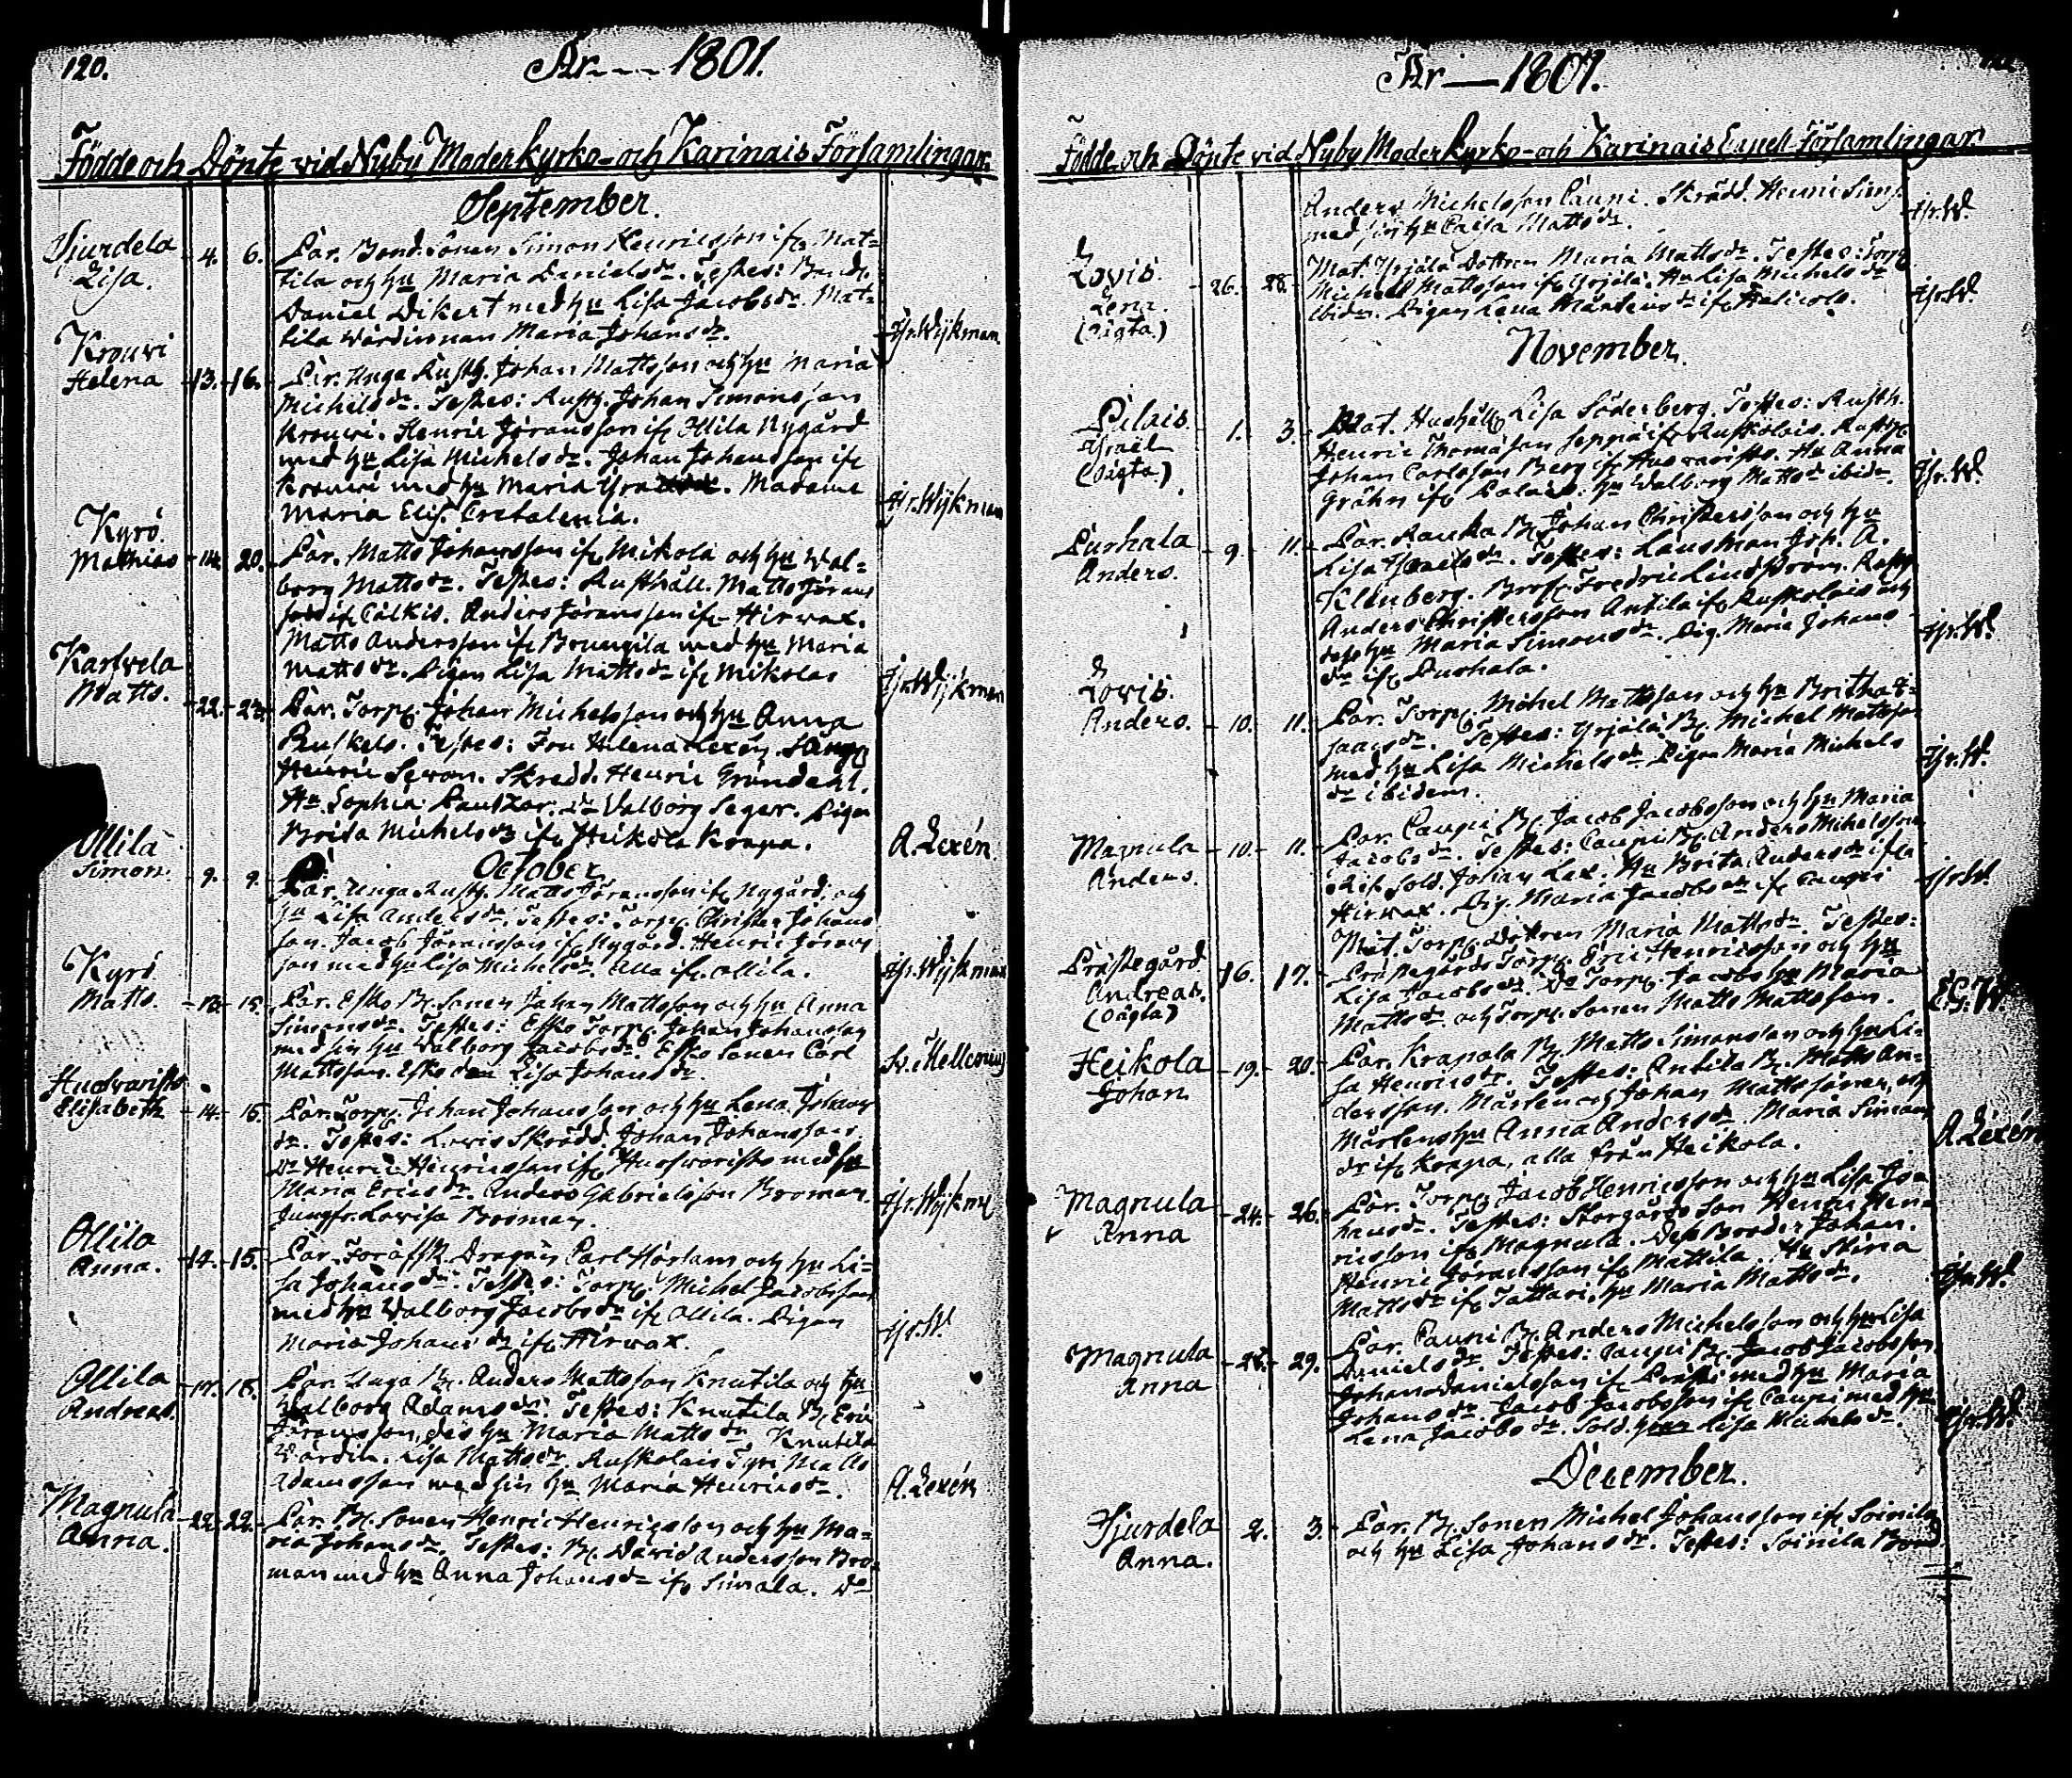 120.
År --- 1801.
Födde och Dönte vid Nyby Moderkyrko- och Karinais Församlingar.
September.
Tjurdela
Lisa.
4. 6. Par. Bond.Sonen Simon Henricsson ifr. Mat-
tila och hu Maria Danielsdr. Testes: Bond.
Daniel Dikert med hu Lisa Jacobsdr. Mat-
tila Wärdinnan Maria Johansdr.
Hj.Wijkman
Krouvi
Helena
13. 16. Par. Unga Rusth. Johan Mattsson och hu Maria
Michelsdr. Testes: Rusth. Johan Simonsson
Krouvi. Henric Göransson ifr. Ollila Nygård
med hu Lisa Michelsdr. Johan Johansson ifr
Krouvi med hu Maria. Madame
Maria Elis. Cretalenia.
Hj.Wijkman
Kyrö.
Mathias
14. 20. Par. Matts Johansson ifr Mikola och hu Wal-
borg Mattsdr. Testes: Rusthåll. Matts Görans
son ifr Calkis. Anders Göransson ifr Hirwax.
Matts Andersson ifr med hu Maria
Mattsdr. Pigan Lisa Mattsdr ifr Mikola
Hj.Wijkman
Karfvela
Matts.
22. 23. Par. Torp. Johan Michelsson och hu Anna
Testes: Fru Helena Lexén.
Henric. Skrädd. Henric Gröndahl.
Hu Sophia. Do Valborg Seger. Piga
Brita Michelsdr ifr Heikola Krapa.
A.Lexén.
October.
Ollila
Simon.
9. 9. Par. Unga Rusth. Matts Göransson ifr Nygård, och
hu Lisa Andersdr. Testes: Torp. Christer Johans
son. Jacob Göransson ifr Nygård. Henric Görans
son med hu Lisa Michelsdr. Alla ifr. Ollila.
Hj.Wijkman
Kyrö
Matts.
13. 15. Par. Esko B. Sonen Johan Mattsson och hu Anna
Simonsdr. Testes: Esko Torp. Johan Johansson
med sin hu Walborg Jacobsdr. Esko Sonen Carl
Mattsson. Esko Lisa Johansdr.
Huovaristo
Elisabeth
14. 15. Par. Torp. Johan Johansson och hu Lena Johans
dr. Testes: Lovis Skrädd. Johan Johansson
Do Henric Henricsson ifr Huovaristo med hu
Maria Ericsdr. Anders Gabrielsson Broman.
Jungfr. Lovisa Broman.
Hj.Wijkm
Ollila
Anna.
14. 15. Par. Dragon Carl och hu Li-
sa Johansdr. Testes: Torp. Michel Jacobsson
med hu Walborg Jacobsdr ifr Ollila. Pigan
Maria Johansdr ifr Hirwax.
Hj.W.
Ollila
Andreas.
17. 18. Par. Unga B. Anders Mattsson Knutila och hu
Walborg Adamsdr. Testes: Knutila B. Eric
Göransson, des hu Maria Mattsdr Knutila
Wärdin. Lisa Mattsdr. Ruskolais Matts
Adamsson med sin hu Maria Henricsdr.
A.Lexén
Magnula
Anna.
22. 22. Par. B. Sonen Henric Henricsson och hu Ma-
ria Johansdr. Testes: B. David Andersson Bro-
man med hu Anna Johansdr ifr Simala. Do
År — 1801.
Födde och Dönte vid Nyby Moderkyrko- och Karinais Capell Församlingar.
Anders Michelsson Caupi. Skrädd. Henric Sims.
med sin hu Caisa Mattsdr.
Hj.W.
Lovis.
Lena.
(Oägta)
26. 28. Mat. Yrjälä Dottren Maria Mattsdr. Testes: Torp.
Michell Mattsson ifr Yrjälä. Hu Lisa Michelsdr
ibidm. Pigan Lena Mårtensdr ifr Halicola.
Hj.W.
November.
Pilais
Israel
(Oägta.)
1. 3. Mat. Hushåll. Lisa Söderberg. Testes: Rusth.
Henric Thomasson Seppä ifr Ruskolais. Rusth.
Johan Carlsson Berg ifr Huovaristo. Hu Anna
Grähn ifr. hu Walborg Mattsdr ibidm.
Hj.W.
Purhala
Anders.
9. 11. Par. Rauka B. Johan Christersson och hu
Lisa Israelsdr. Testes: Länsman Joh. A.
Klenberg. Fredric Lindström. Rusth.
Anders Christersson Antila ifr Ruskolais och
dess hu Maria Simonsdr. Pig. Maria Johans
dr ifr Purhala.
Hj.W.
Lovis.
Anders.
10. 11. Par. Torp. Michel Mattsson och hu Britha I-
saacsdr. Testes: Yrjälä B. Michel Mattsson
med hu Lisa Michelsdr Pigan Maria Michels
dr ibidem.
Hj.W.
Magnula
Anders.
10. 11. Par. Caupi B. Jacob Jacobsson och hu Maria
Jacobsdr. Testes: Caupi B. Anders Michelsson
Sold. Johan Lax. Hu Brita Andersdr ifr
Hirwax. Pig. Maria Jacobsdr ifr Caupi
Hj.W.
Prästegård
Andreas.
(Oägta)
16. 17. Mat. Torp. Dottren Maria Mattsdr. Testes:
Prästegårds Torp. Eric Henricsson och hu
Lisa Jacobsdr. Do Torp. Jacobs hu Maria
Mattsdr. och Torp. Sonen Matts Mattsson.
Heikola
Johan
19. 20. Par. Krapala B. Matts Simonsson och hu Li-
sa Henricsdr. Testes: Antila B. Matts An-
dersson. Mårten och Johan Mattssöner, och
Mårtens hu Anna Andersdr. Maria Simons
dr ifr Krapa, alla från Heikola.
A.Lexén
Magnula
Anna
24. 26. Par. Torp. Jacob Henricsson och hu Lisa Jo-
hansdr. Testes: Storgårds Son Henric Hen-
ricsson ifr Magnula. Dess Broder Johan.
Henric Göransson ifr Mattila. Hu Stina
Mattsdr ifr Tattari. hu Maria Mattsdr.
Hj.W.
Magnula
Anna
28. 29. Par. Caupi B. Anders Michelsson och hu Lisa
Danielsdr. Testes: Caupi B. Jacob Jacobsson.
Johan Danielsson ifr med hu Maria
Johansdr. Jacob Jacobsson ifr Caupi med hu
Lena Jacobsdr. Sold. hu Lisa Michelsdr.
Hj.W.
December.
Tjurdela
Anna.
2. 3. Par. B. Sonen Michel Johansson ifr Soinila
och hu Lisa Johansdr. Testes: Soinila Bond.